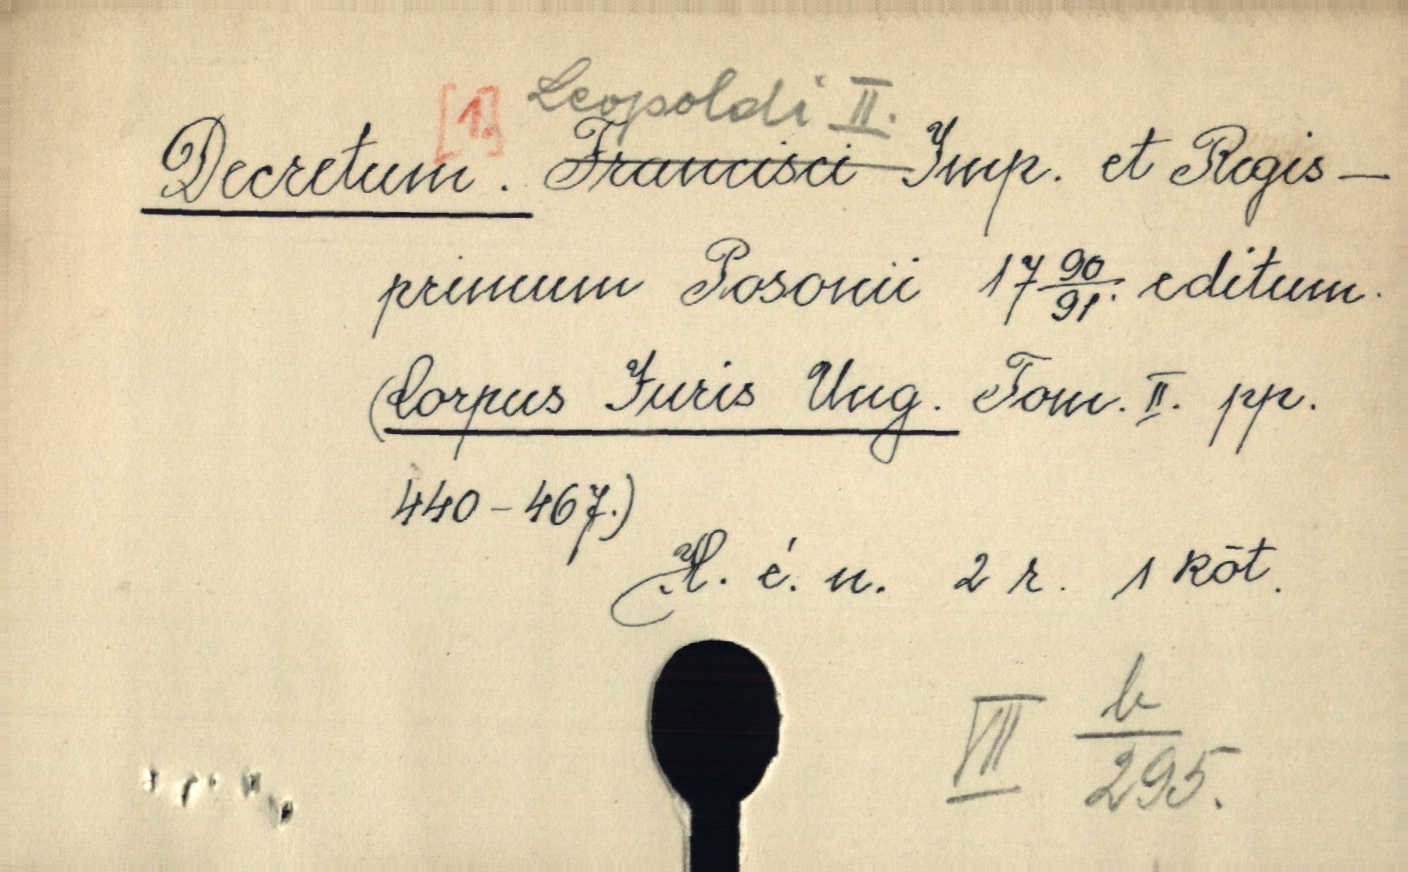 [1.] Leopoldi II.
Decretum. Francisci Imp. et Regis –
primum Posonii 17 90/91. editum.
(Corpus Juris Ung. Tom. II. pp.
440–467.)
H. é. n. 2 r. 1 köt.
VII b/295.